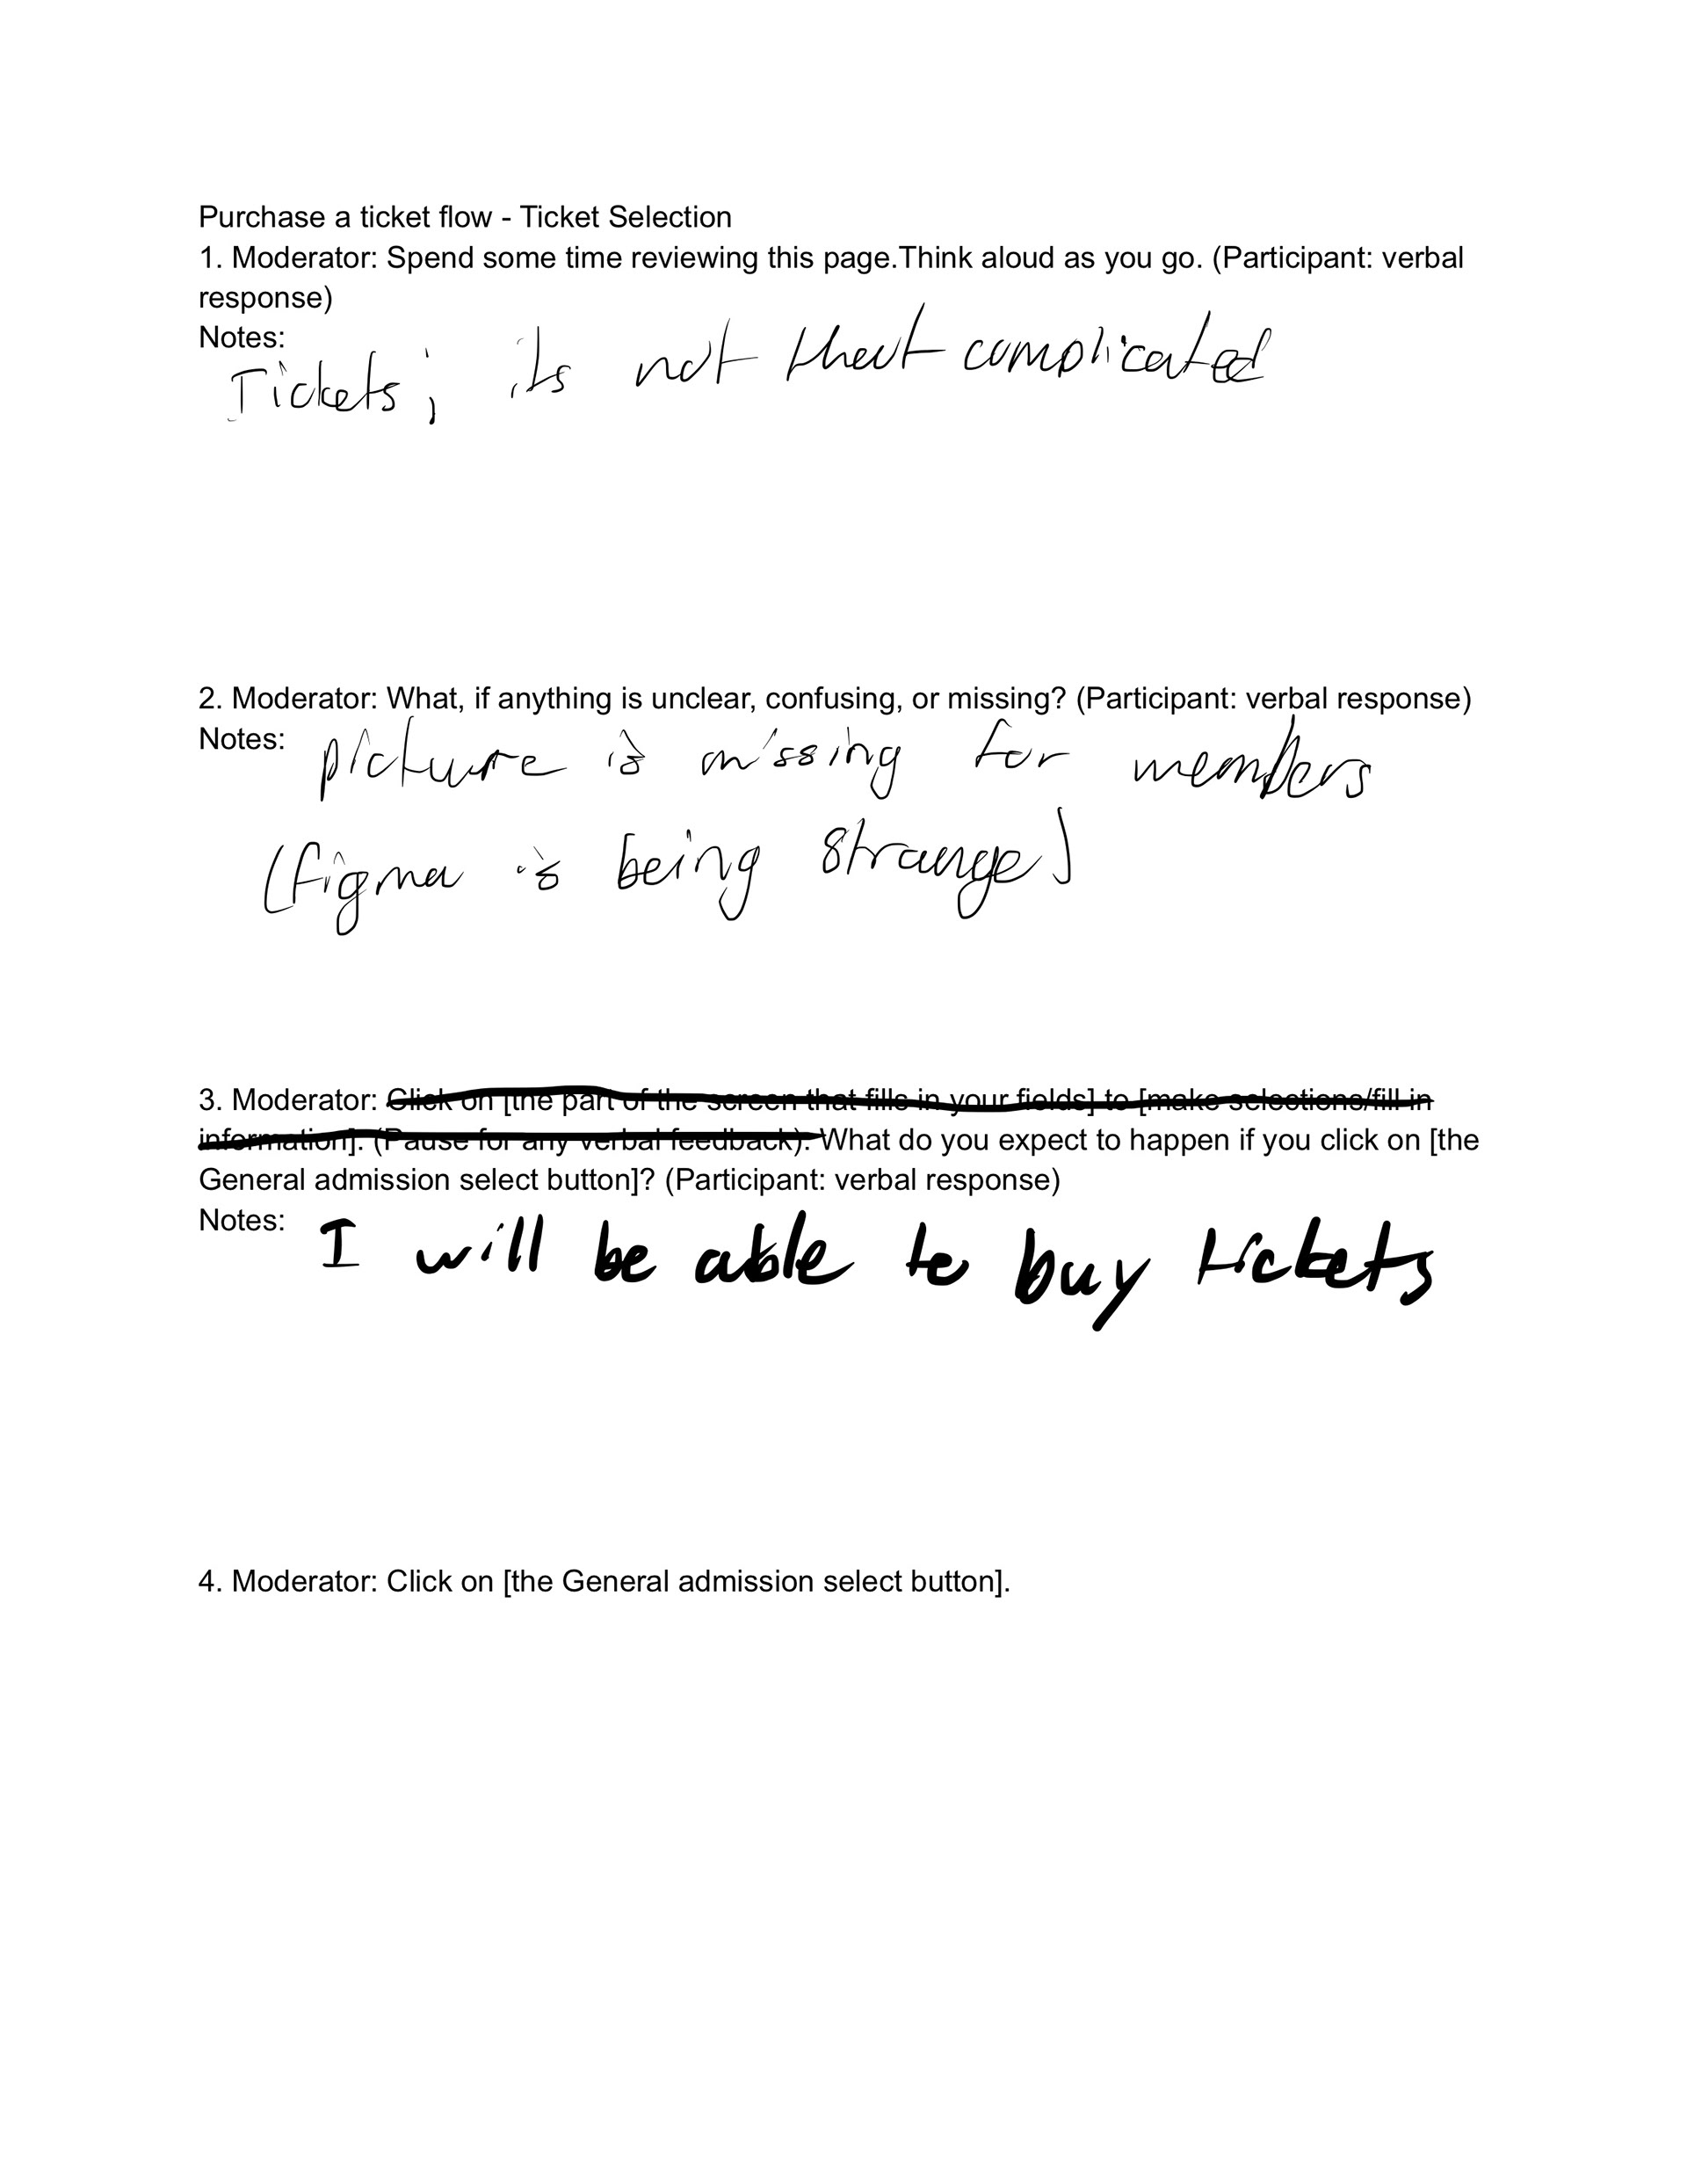 Purchase a ticket flow - Ticket Selection
1. Moderator: Spend some time reviewing this page.Think aloud as you go. (Participant: verbal
response)
Notes:
Tickets; its not that complicated
2. Moderator: What, if anything is unclear, confusing, or missing? (Participant: verbal response)
Notes: picture is missing for members
(figma is being strange)
3. Moderator: Click on [the part of the screen that fills in your fields] to [make selections/fill in
information]. (Pause for any verbal feedback). What do you expect to happen if you click on [the
General admission select button]? (Participant: verbal response)
Notes: I will be able to buy tickets
4. Moderator: Click on [the General admission select button].